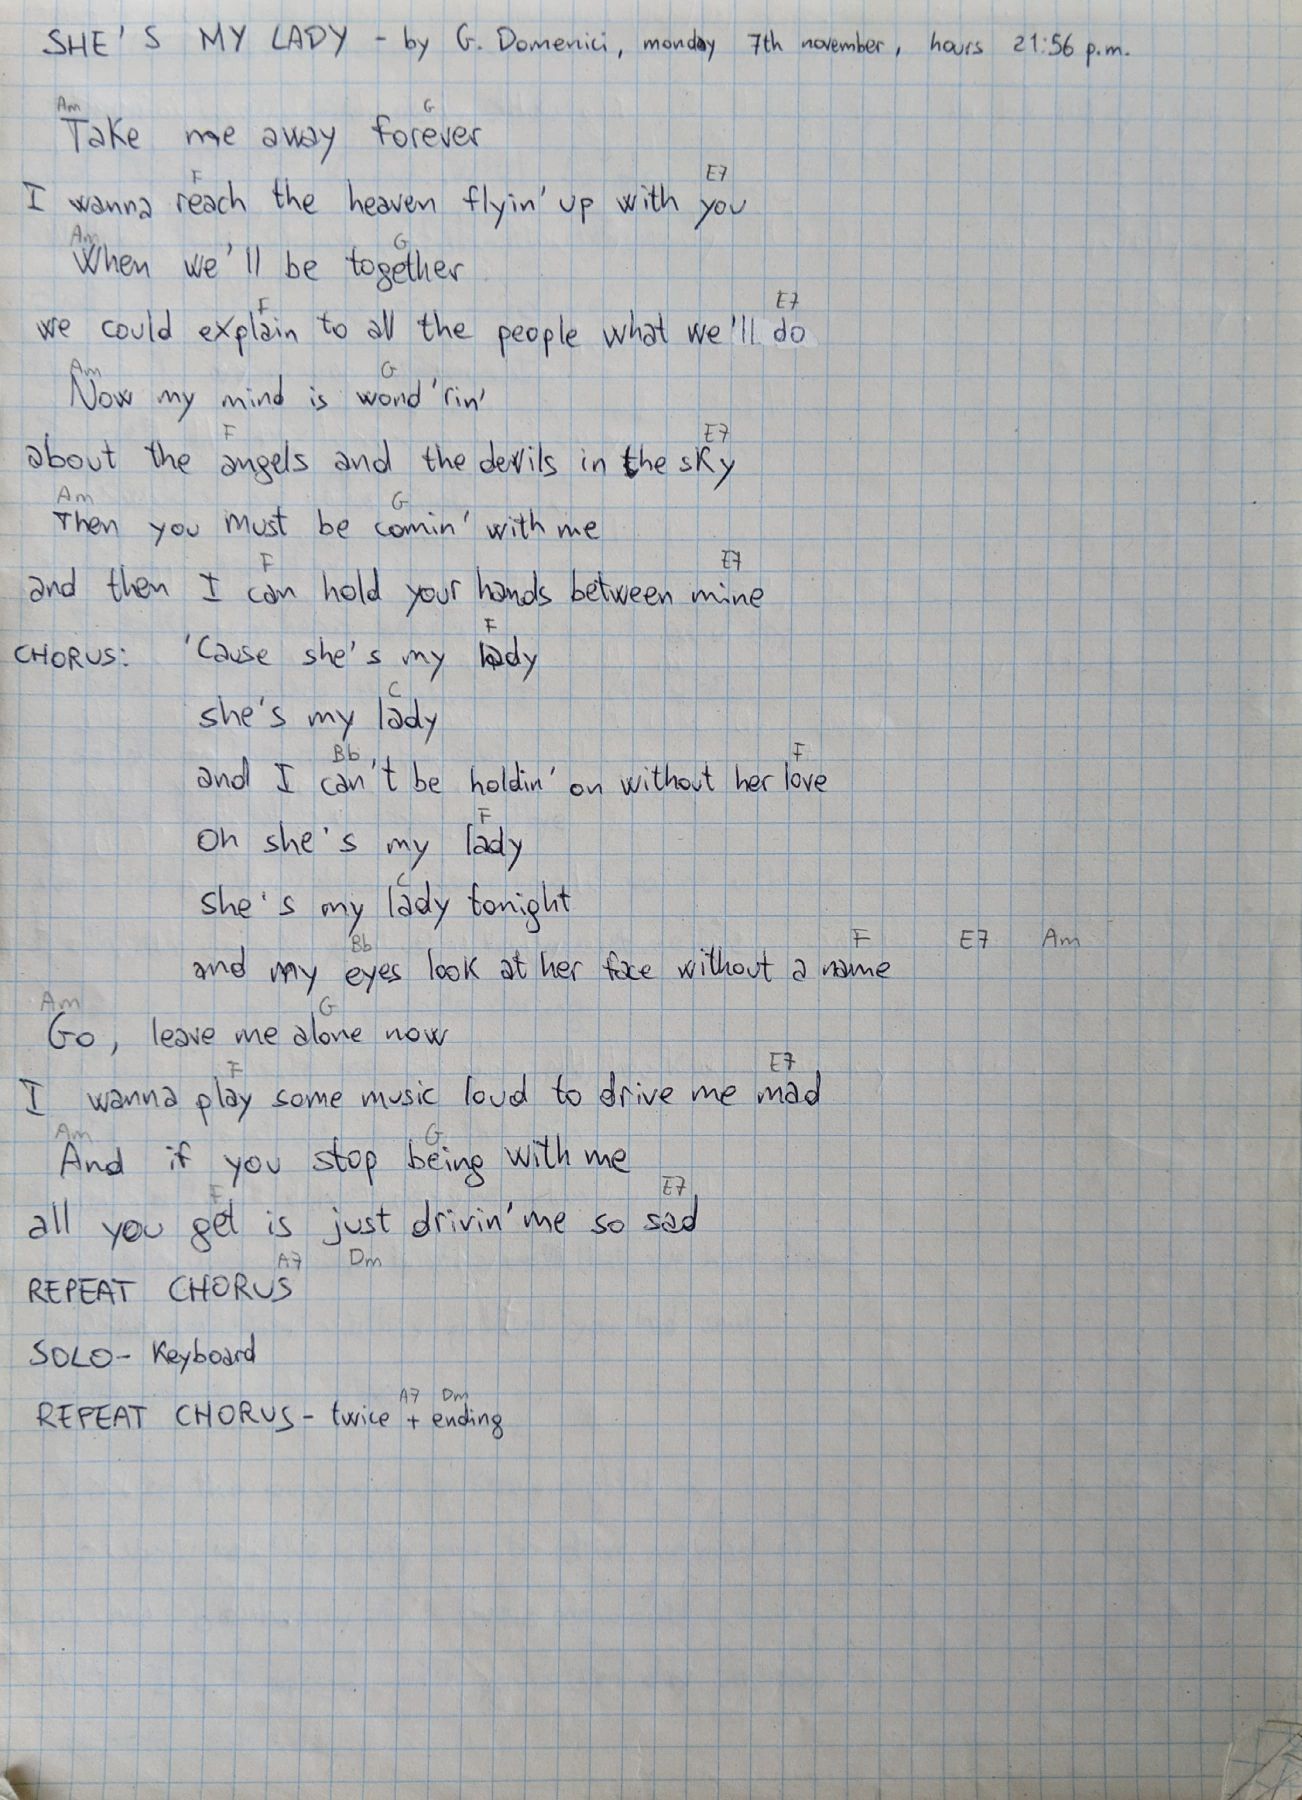 SHE'S MY LADY - by G. Domenici, monday 7th november, hours 21:56 p.m.
Am G
Take me away forever
F E7
I wanna reach the heaven flyin' up with you
Am G
When we'll be together
F E7
we could explain to all the people what we'll do
Am G
Now my mind is wond'rin'
F E7
about the angels and the devils in the sky
Am G
Then you must be comin' with me
F E7
and then I can hold your hands between mine
F
CHORUS: 'Cause she's my lady
C
she's my lady
Bb F
and I can't be holdin' on without her love
F
Oh she's my lady
C
she's my lady tonight
Bb F E7 Am
and my eyes look at her face without a name
Am G
Go, leave me alone now
F E7
I wanna play some music loud to drive me mad
Am G
And if you stop being with me
F E7
all you get is just drivin' me so sad
A7 Dm
REPEAT CHORUS
SOLO - Keyboard
A7 Dm
REPEAT CHORUS - twice + ending